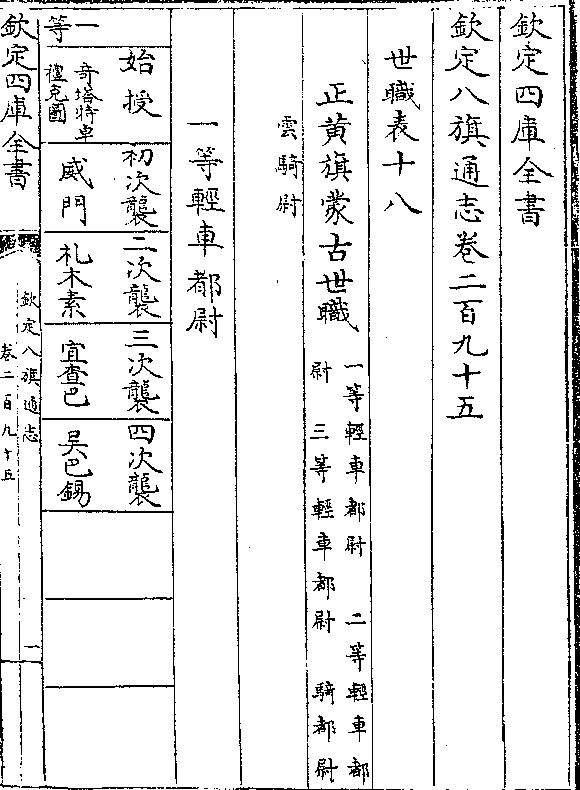 欽定四庫全書
欽定八旗通志卷二百九十五
世職表十八
正黃旗蒙古世職 一等輕車都尉 二等輕車都
尉 三等輕車都尉 騎都尉
雲騎尉
一等輕車都尉
始授 初次襲 二次襲 三次襲 四次襲
一等
奇塔特車
禮克圖 威門 札木素 宜查巴 吳巴錫
欽定四庫全書
欽定八旗通志
卷二百九十五
一